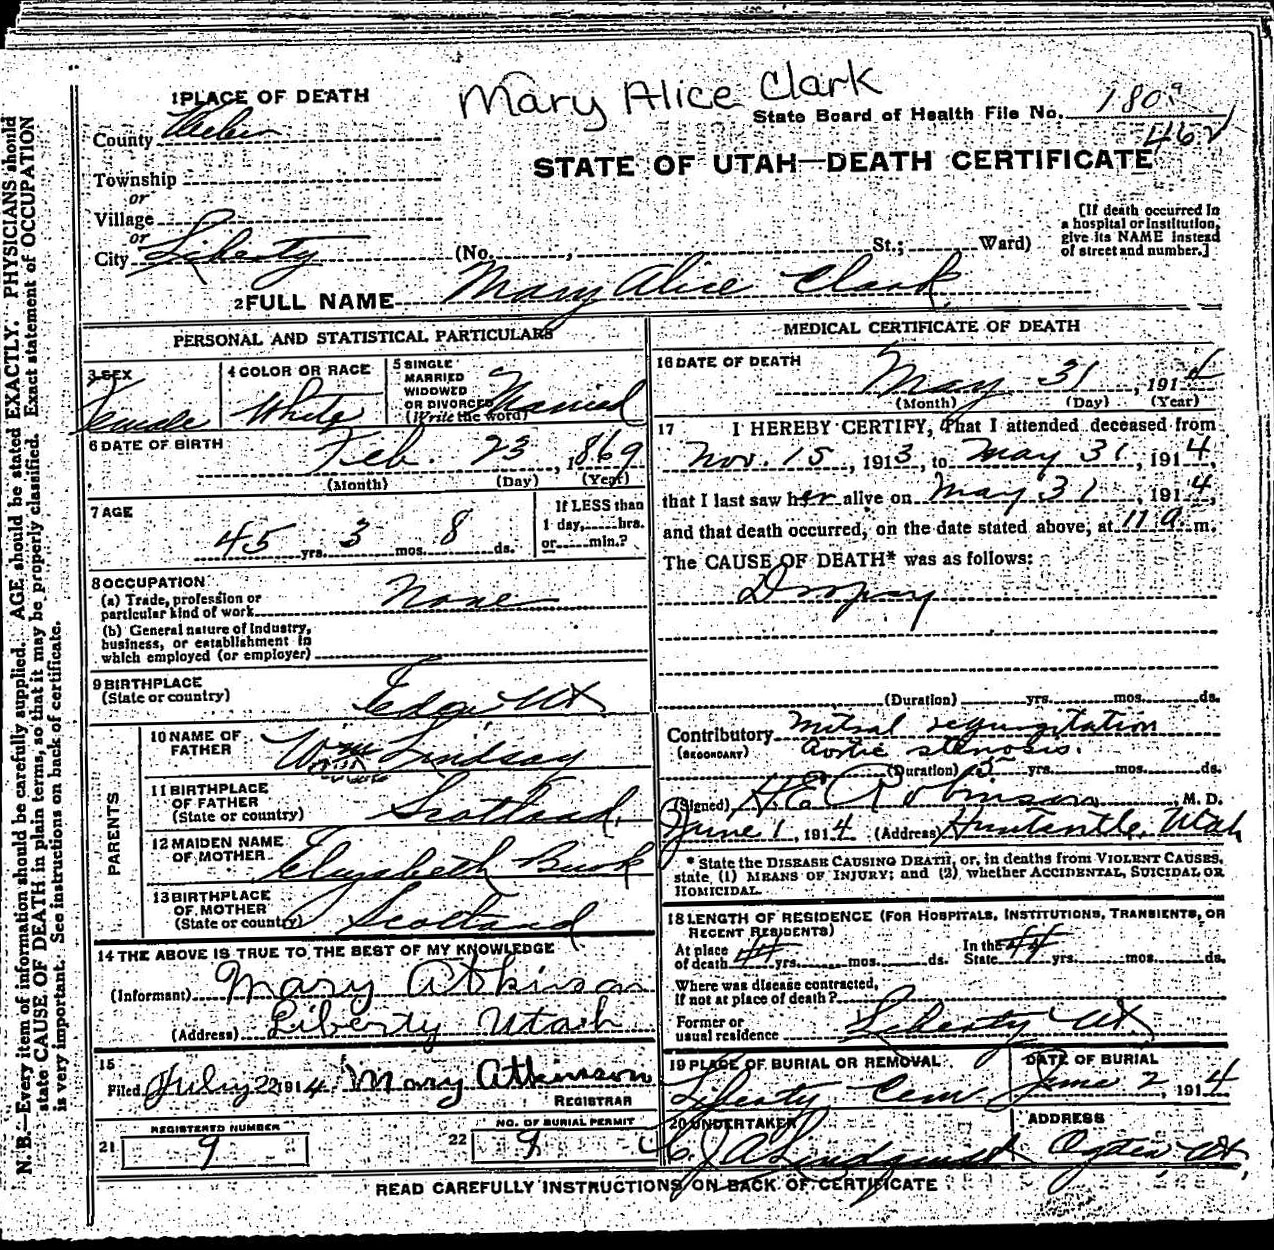 Mary Alice Clark
1 PLACE OF DEATH
State Board of Health File No. 180
462
County Weber
STATE OF UTAH—DEATH CERTIFICATE
Township
or
Village
or
City Liberty
(No. , St.; Ward)
[If death occurred in
a hospital or institution,
give its NAME instead
of street and number.]
2 FULL NAME Mary Alice Clark
PERSONAL AND STATISTICAL PARTICULARS
3 SEX
Female
4 COLOR OR RACE
White
5 SINGLE
MARRIED
WIDOWED
OR DIVORCED
(Write the word)
Married
6 DATE OF BIRTH
Feb. 23, 1869
(Month) (Day) (Year)
7 AGE
45 yrs. 3 mos. 8 ds.
If LESS than
1 day, hrs.
or min.?
8 OCCUPATION
(a) Trade, profession or
particular kind of work None
(b) General nature of industry,
business, or establishment in
which employed (or employer)
9 BIRTHPLACE
(State or country) Ut
PARENTS
10 NAME OF
FATHER Wm Lindsay
11 BIRTHPLACE
OF FATHER
(State or country) Scotland.
12 MAIDEN NAME
OF MOTHER Elizabeth
13 BIRTHPLACE
OF MOTHER
(State or country) Scotland
14 THE ABOVE IS TRUE TO THE BEST OF MY KNOWLEDGE
(Informant) Mary Atkinson
(Address) Liberty Utah
15
Filed July 22 1914 Mary Atkinson
REGISTRAR
21 REGISTERED NUMBER 9
22 NO. OF BURIAL PERMIT 9
MEDICAL CERTIFICATE OF DEATH
16 DATE OF DEATH
May 31, 1914
(Month) (Day) (Year)
17 I HEREBY CERTIFY, That I attended deceased from
Nov. 15, 1913, to May 31, 1914,
that I last saw her alive on May 31, 1914,
and that death occurred, on the date stated above, at 11 a m.
The CAUSE OF DEATH* was as follows:
Dropsy
(Duration) yrs. mos. ds.
Contributory Mitral regurgitation
(SECONDARY) Aortic stenosis.
(Duration) 5 yrs. mos. ds.
(Signed) H. E. Robinson, M. D.
June 1, 1914 (Address) Huntsville, Utah
* State the DISEASE CAUSING DEATH, or, in deaths from VIOLENT CAUSES,
state (1) MEANS OF INJURY; and (2) whether ACCIDENTAL, SUICIDAL OR
HOMICIDAL.
18 LENGTH OF RESIDENCE (FOR HOSPITALS, INSTITUTIONS, TRANSIENTS, OR
RECENT RESIDENTS)
At place
of death 44 yrs. mos. ds. In the
State 44 yrs. mos. ds.
Where was disease contracted,
if not at place of death?
Former or
usual residence Liberty Ut
19 PLACE OF BURIAL OR REMOVAL
Liberty Cem.
DATE OF BURIAL
June 2, 1914
20 UNDERTAKER
J A Lindquist
ADDRESS
Ogden Ut,
READ CAREFULLY INSTRUCTIONS ON BACK OF CERTIFICATE
N. B.—Every item of information should be carefully supplied. AGE should be stated EXACTLY. PHYSICIANS should
state CAUSE OF DEATH in plain terms, so that it may be properly classified. Exact statement of OCCUPATION
is very important. See instructions on back of certificate.